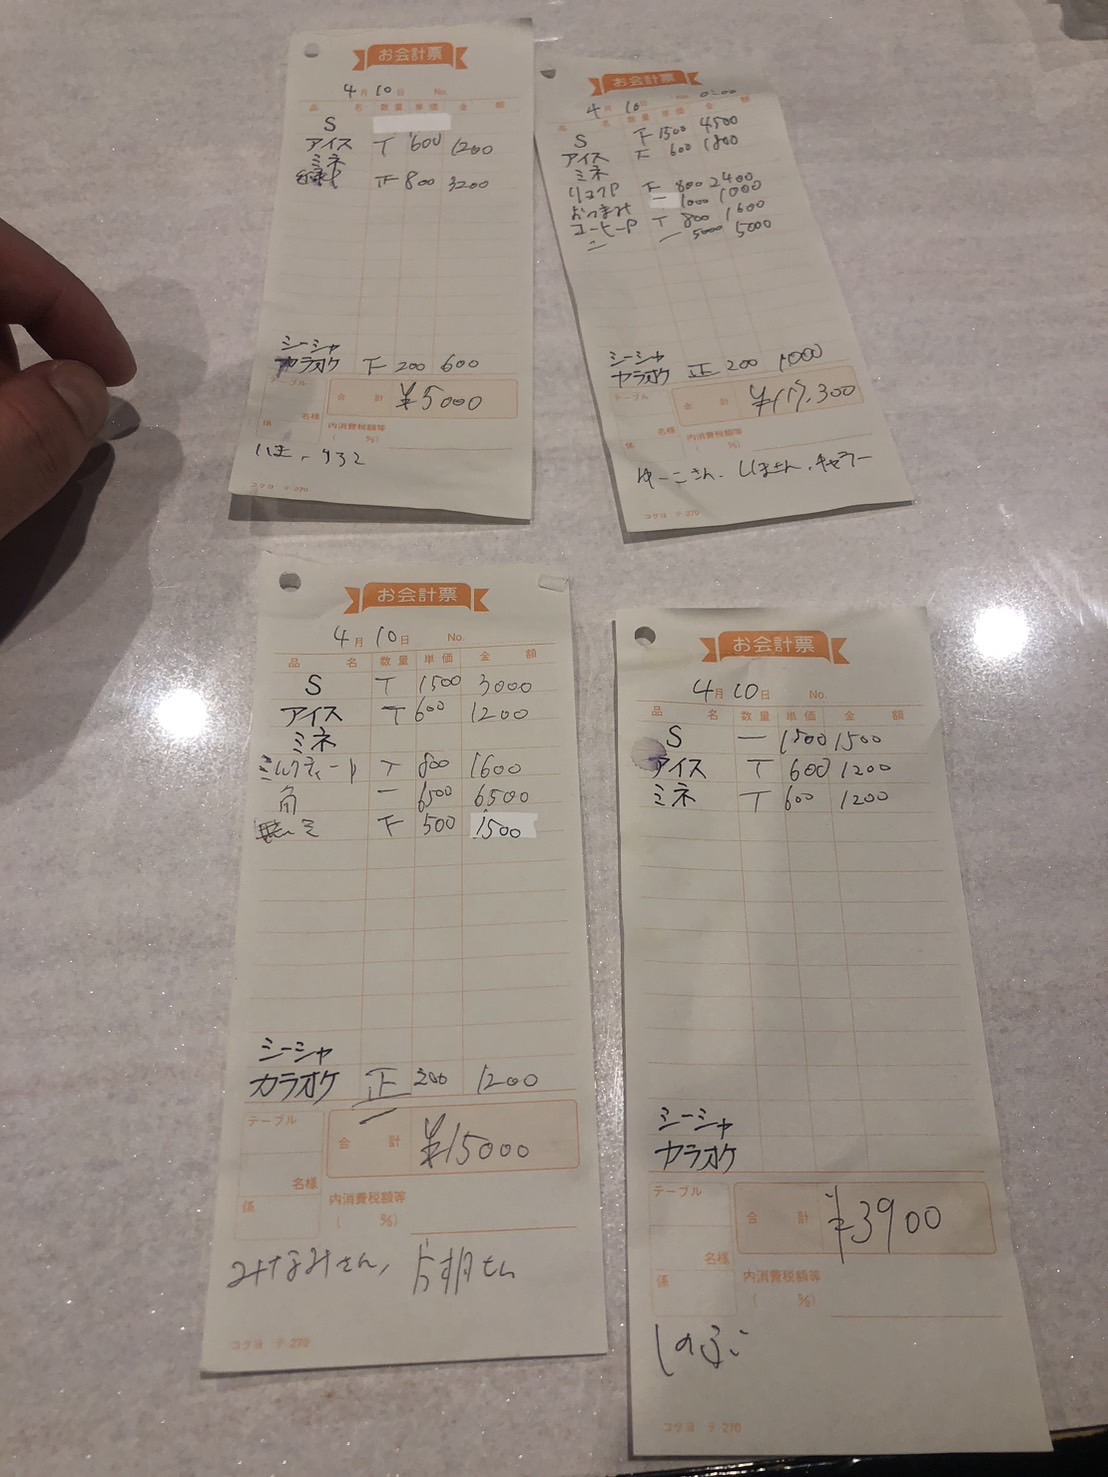 お会計票
4月10日 No.
品 名 数量 単価 金 額
S
アイス T 600 1200
ミネ
正 800 3200
シーシャ
カラオケ 下 200 600
テーブル
会 計 ¥5000
名様
係 内消費税額等
( %)
コクヨ テ-270
お会計票
4月10日
品 名 数量 単価 金 額
S 下 1500 4500
アイス 下 600 1800
ミネ
リョクP 下 800 2400
おつまみ 一 1000 1000
コーヒーP T 800 1600
〃 一 5000 5000
シーシャ
カラオケ 正 200 1000
テーブル
会 計 ¥17,300
名様
係 内消費税額等
( %)
ゆーこさん、しほさん、キャラー
コクヨ テ-270
お会計票
4月10日 No.
品 名 数量 単価 金 額
S T 1500 3000
アイス T 600 1200
ミネ
ミルクティーP T 800 1600
角 一 6500 6500
下 500 1500
シーシャ
カラオケ 正一 200 1200
テーブル
会 計 ¥15000
名様
係 内消費税額等
( %)
みなみさん,
コクヨ テ-270
お会計票
4月10日 No.
品 名 数量 単価 金 額
S 一 1500 1500
アイス T 600 1200
ミネ T 600 1200
シーシャ
カラオケ
テーブル
会 計 ¥3900
名様
係 内消費税額等
( %)
しのぶ
コクヨ テ-270